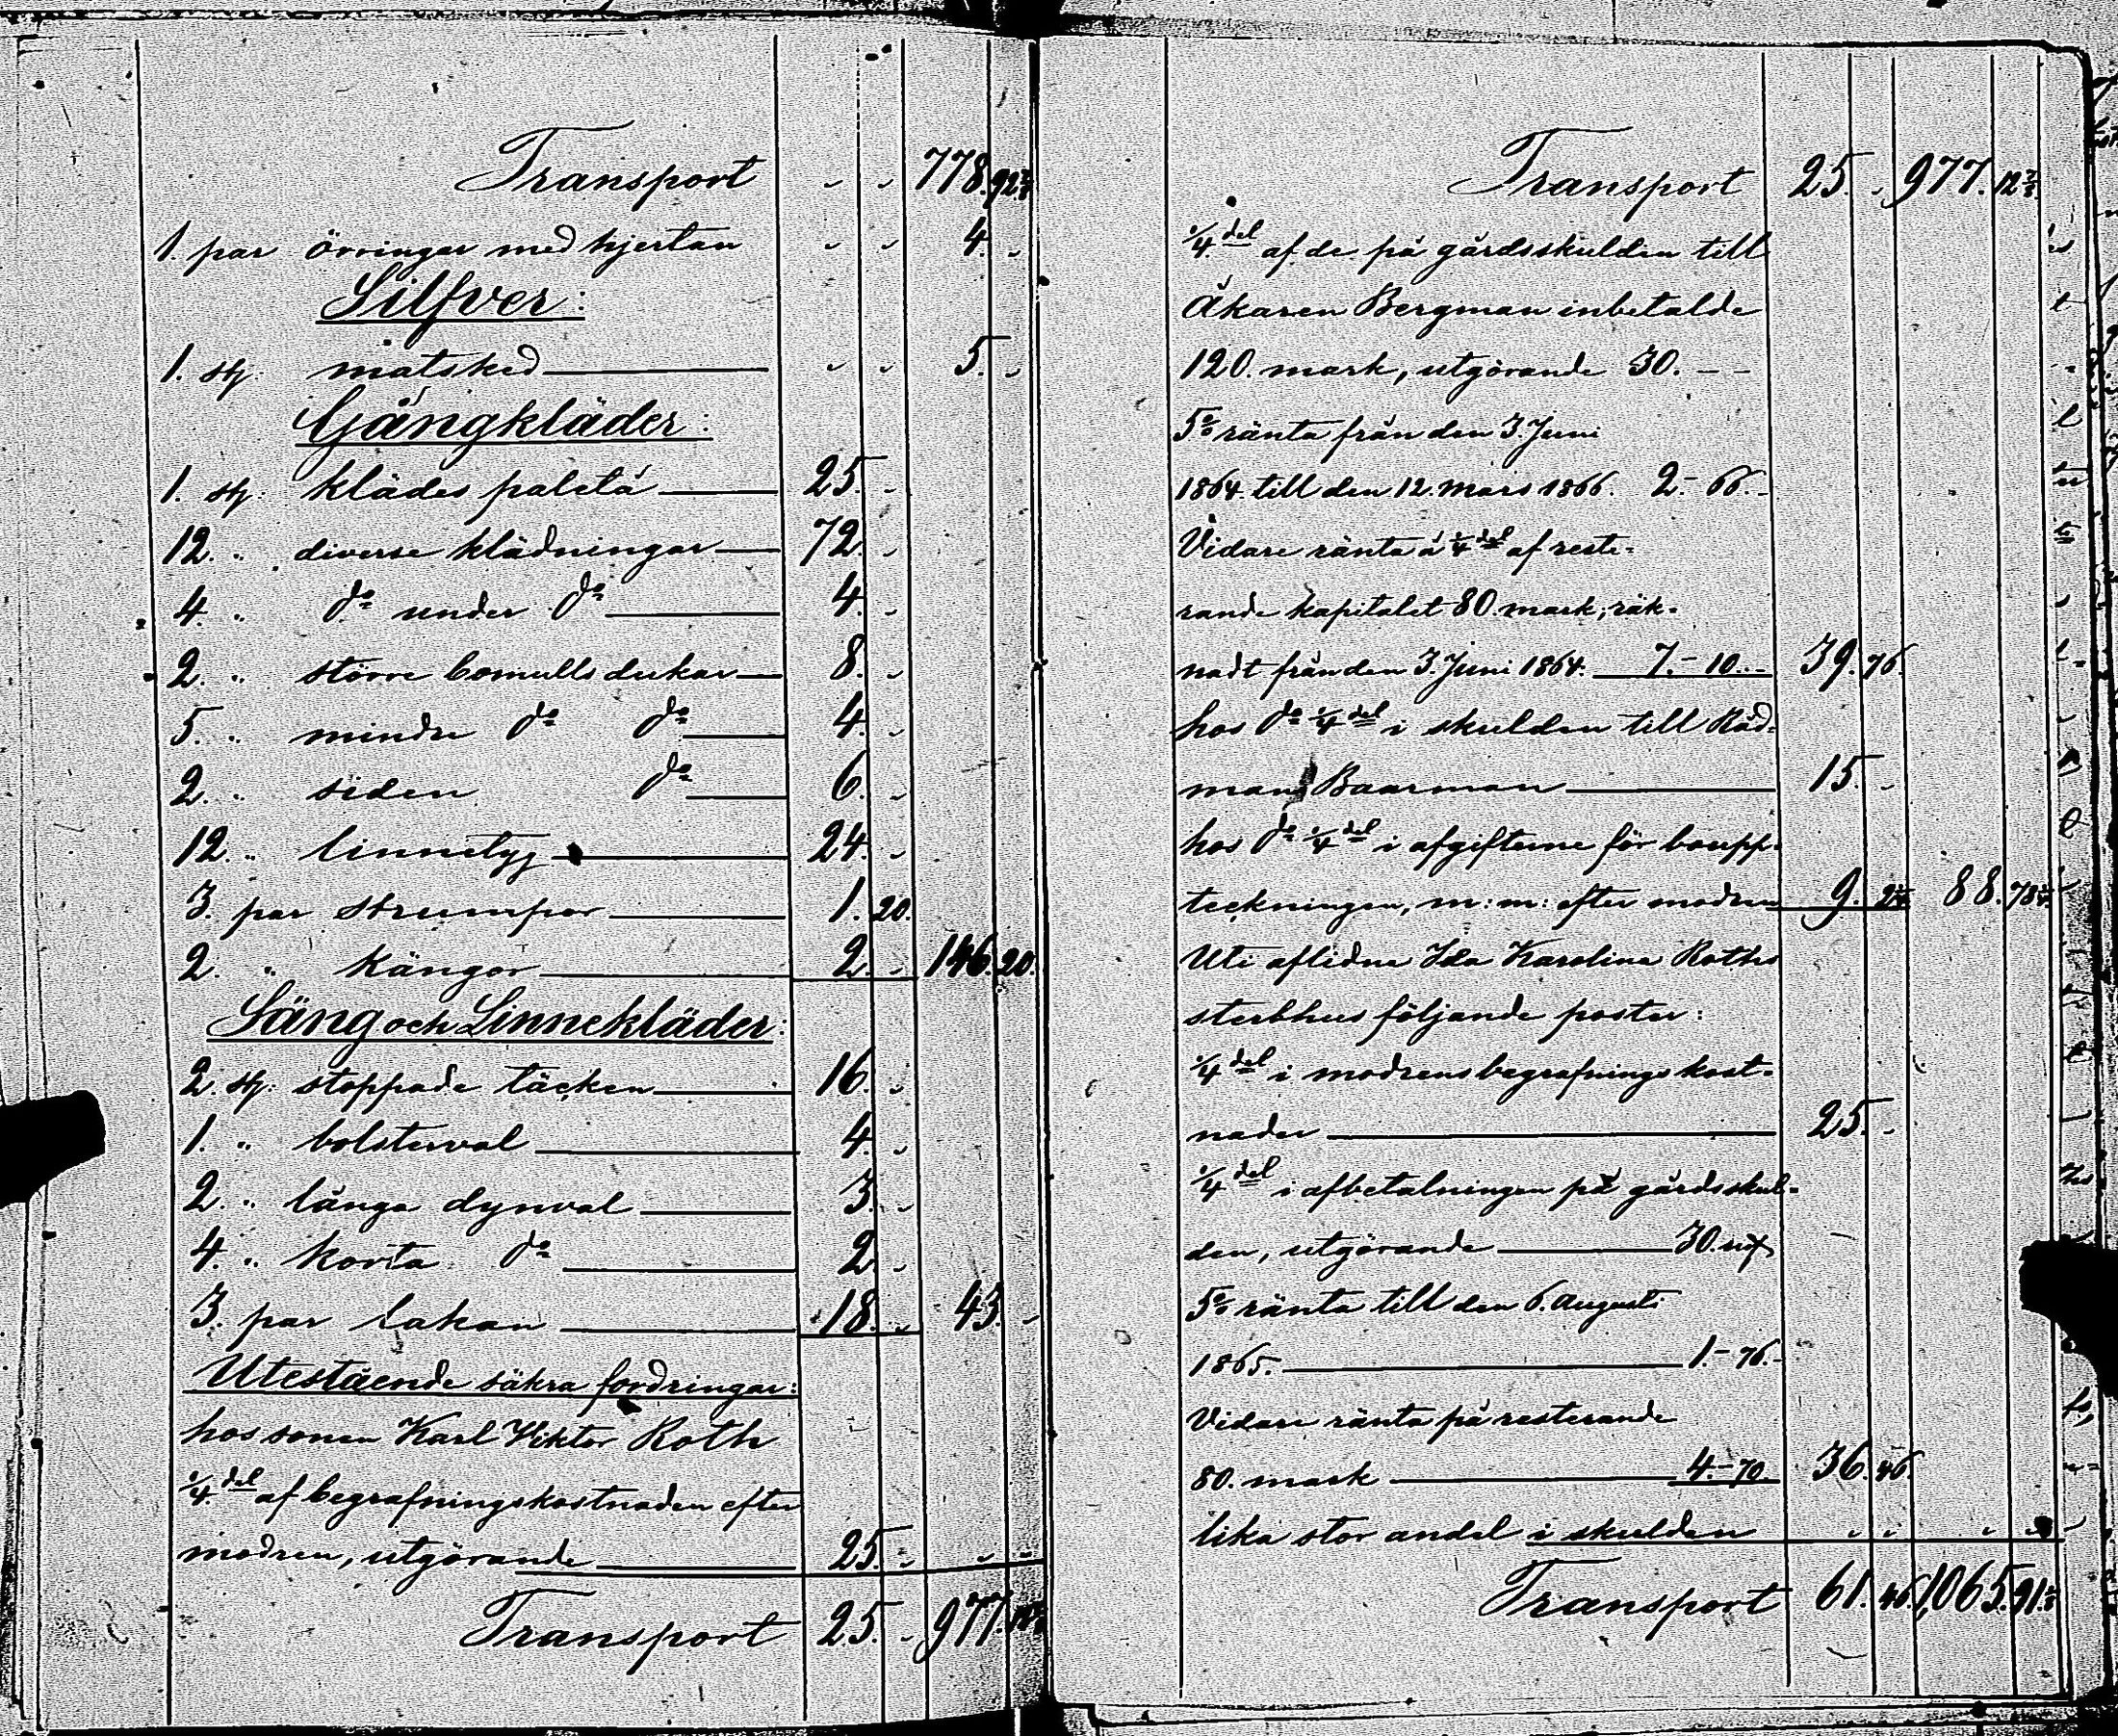 Transport " " 778. 92
1. par örringar med hjertan " " 4. "
Silfver:
1. st: matsked " " 5. "
Gångkläder:
1. st: klädes paletå 25. "
12. " diverse klädningar 72. "
4. " d:o under d:o 4. "
2. " större bomulls dukar 8. "
5. " mindre d:o d:o 4. "
2. " siden d:o 6. "
12. " linnetyg 24. "
3. par strumpor 1. 20.
2 " kängor 2. " 146. 20.
Säng och Linnekläder:
2. st: stoppade täcken 16. "
1. " bolsterval 4. "
2. " långa dynval 3. "
4. " korta d:o 2. "
3. par lakan 18. " 43. "
Utestående säkra fordringar:
hos sonen Karl Viktor Roth
1/4 del af begrafningskostnaden efter
modren, utgörande 25. " " "
Transport 25. " 977.
Transport 25. " 977. 12
1/4 del af de på gårdsskulden till
Åkaren Bergman inbetalde
120. mark, utgörande 30. – –
5% ränta från den 3. Juni
1864. till den 12. Mars 1866. 2.– 66.–
Vidare ränta å 1/4 del af reste-
rande kapitalet 80. mark, räk-
nadt från den 3. Juni 1864. 7.– 10.– 39. 76.
hos d:o 1/4 del i skulden till Råd-
man Baarman 15. "
hos d:o 1/4 del i afgifterne för boupp-
teckningen, m: m: efter modren 9. 88. 78
Uti aflidna Ida Karolina Roths
sterbhus följande poster:
1/4 del i modrens begrafnings kost-
nader 25. "
1/4 del i afbetalningen på gårdsskul-
den, utgörande 30.
5% ränta till den 6. Augusti
1865. 1.– 76.–
Vidare ränta på resterande
80. mark 4.– 70 36. 46.
lika stor andel i skulden " " " "
Transport 61. 46. 1,065. 91